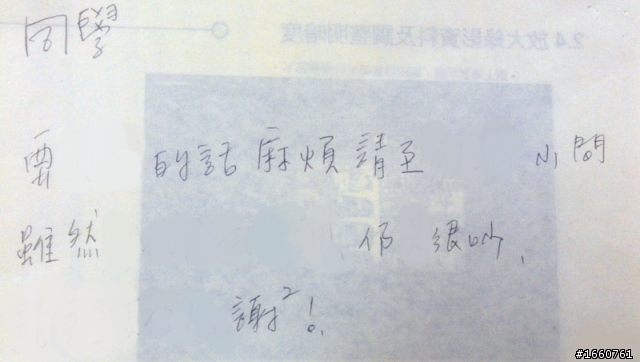 同學
2.4 放大錄影資料及調整明暗度
要 的話麻煩請至 小間
雖然 仍 很吵,
謝²!
#1660761